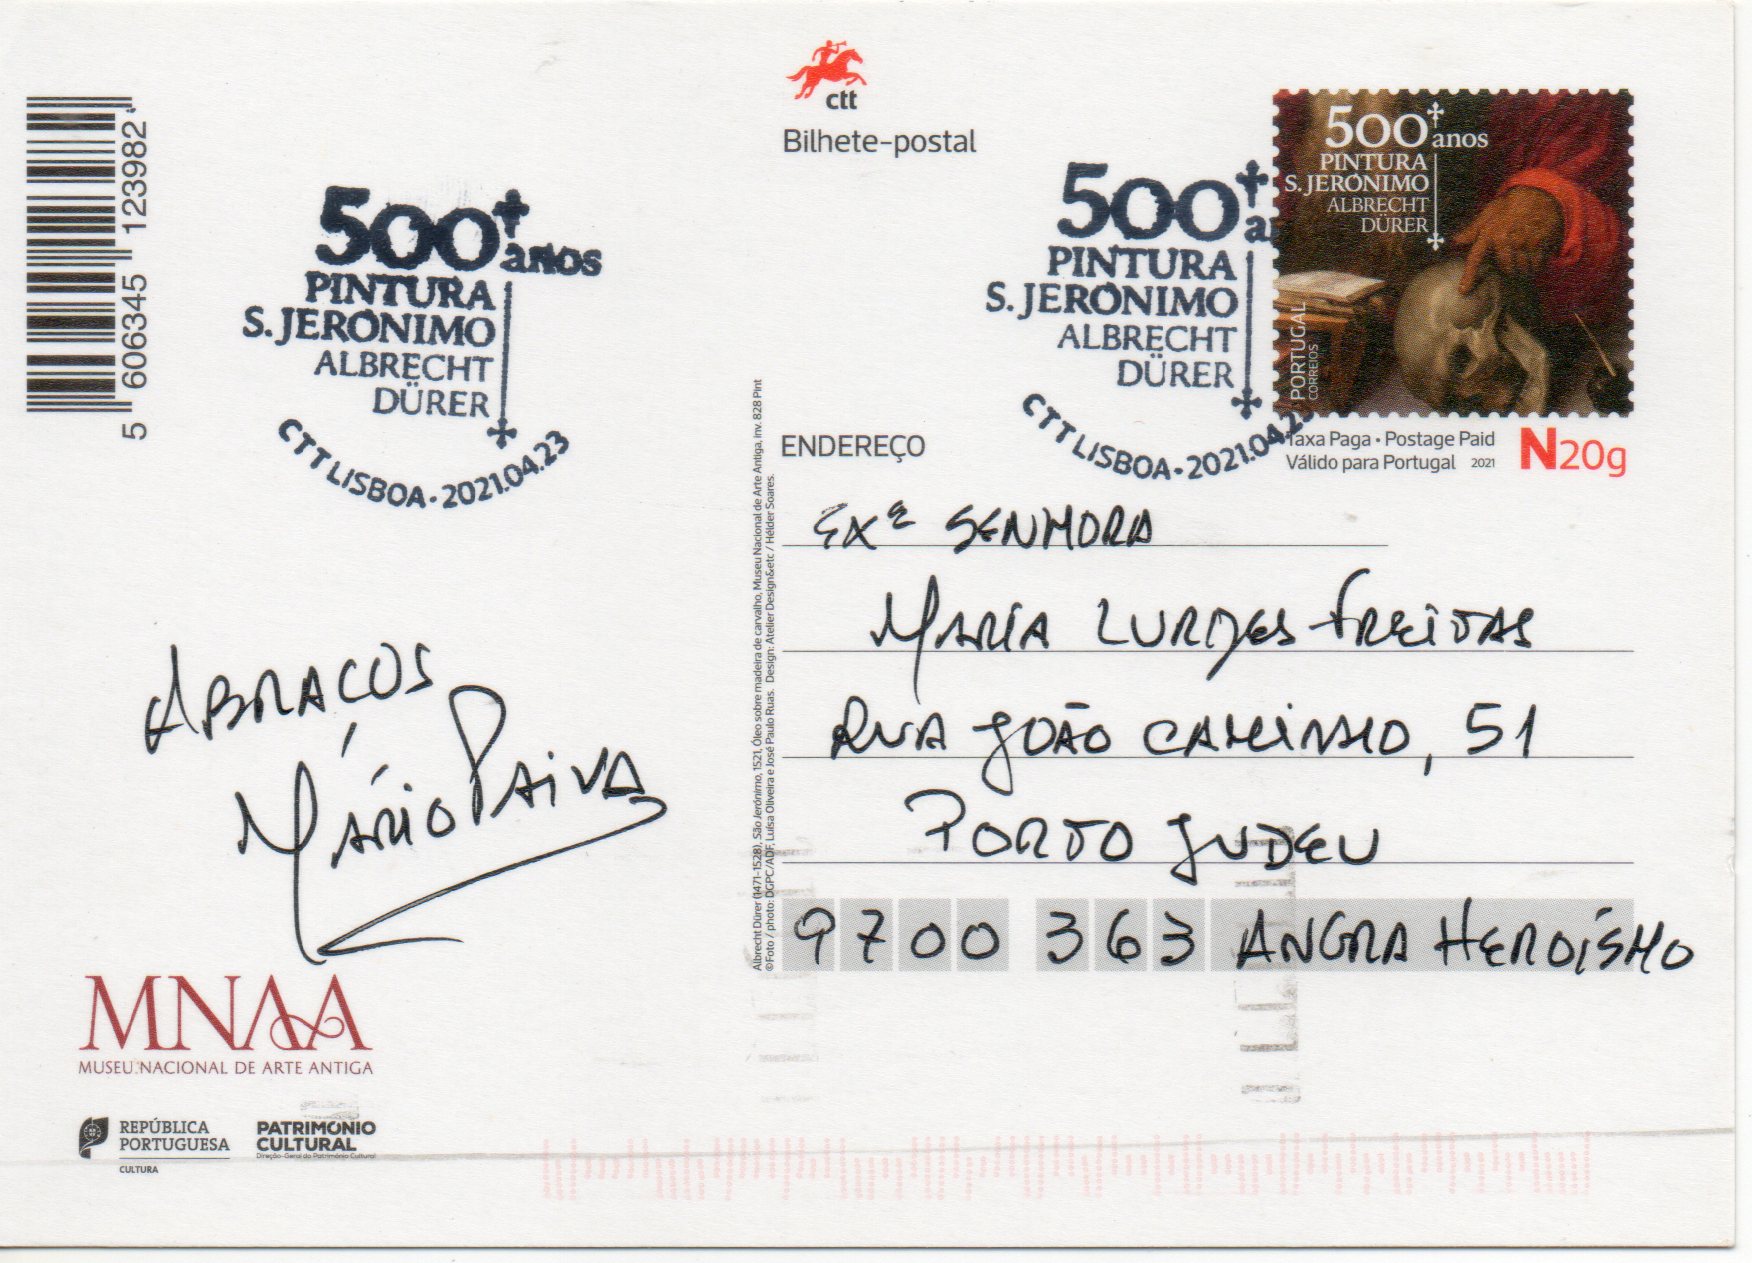 5 606345 123982
ctt
Bilhete-postal
500 anos
PINTURA
S. JERÓNIMO
ALBRECHT
DÜRER
CTT LISBOA · 2021.04.23
500 a
PINTURA
S. JERÓNIMO
ALBRECHT
DÜRER
CTT LISBOA · 2021.04.23
500 anos
PINTURA
S. JERÓNIMO
ALBRECHT
DÜRER
PORTUGAL
CORREIOS
Taxa Paga • Postage Paid
Válido para Portugal 2021
N20g
ENDEREÇO
EXª SENHORA
MARIA LURDES FREITAS
RUA JOÃO CAMINHO, 51
PORTO JUDEU
9700 363 ANGRA HEROÍSMO
ABRAÇOS
Mário PAIVA
Albrecht Dürer (1471-1528), São Jerónimo, 1521, Óleo sobre madeira de carvalho, Museu Nacional de Arte Antiga, inv. 828 Pint
©Foto / photo: DGPC/ADF, Luísa Oliveira e José Paulo Ruas. Design: Atelier Design&etc / Hélder Soares.
MNAA
MUSEU NACIONAL DE ARTE ANTIGA
REPÚBLICA
PORTUGUESA
CULTURA
PATRIMÓNIO
CULTURAL
Direção-Geral do Património Cultural